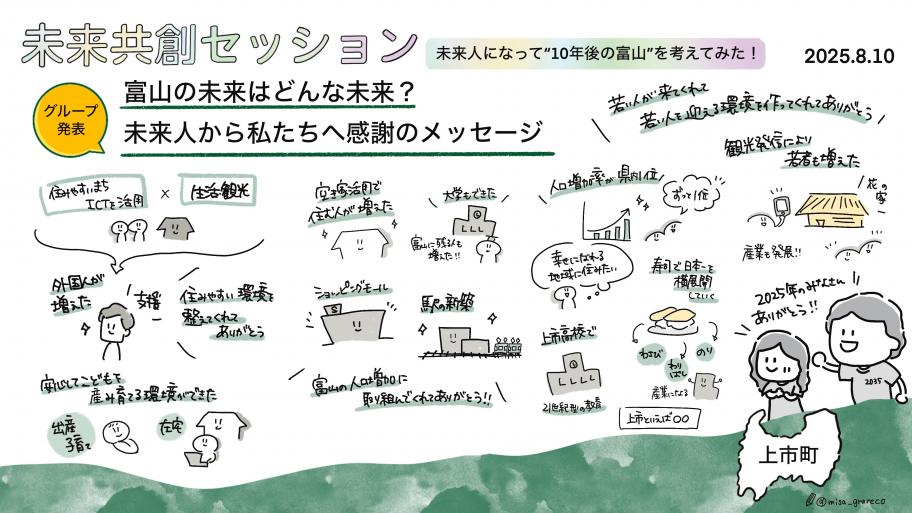 未来共創セッション
未来人になって“10年後の富山”を考えてみた！
2025.8.10
グループ
発表
富山の未来はどんな未来？
未来人から私たちへ感謝のメッセージ
若い人が来てくれて
若い人を迎える環境を作ってくれてありがとう
住みやすいまち
ICTを活用
×
生活観光
外国人が
増えた
支援
住みやすい環境を
整えてくれて
ありがとう
安心してこどもを
産み育てる環境ができた
出産
子育て
在宅
空き家活用で
住む人が増えた
大学もできた
富山に残る人も
増えた!!
ショッピングモール
駅の新築
富山の人口増加に
取り組んでくれてありがとう!!
人口増加率が県内1位
ずっと1位
幸せになれる
地域に住みたい
上市高校で
21世紀型の教育
寿司で日本一を
横展開
していく
わさび
わりばし
のり
産業になる
上市といえば〇〇
観光発信により
若者も増えた
花の
家
産業も発展!!
2025年のみなさん
ありがとう!!
2035
上市町
@misa_grareco